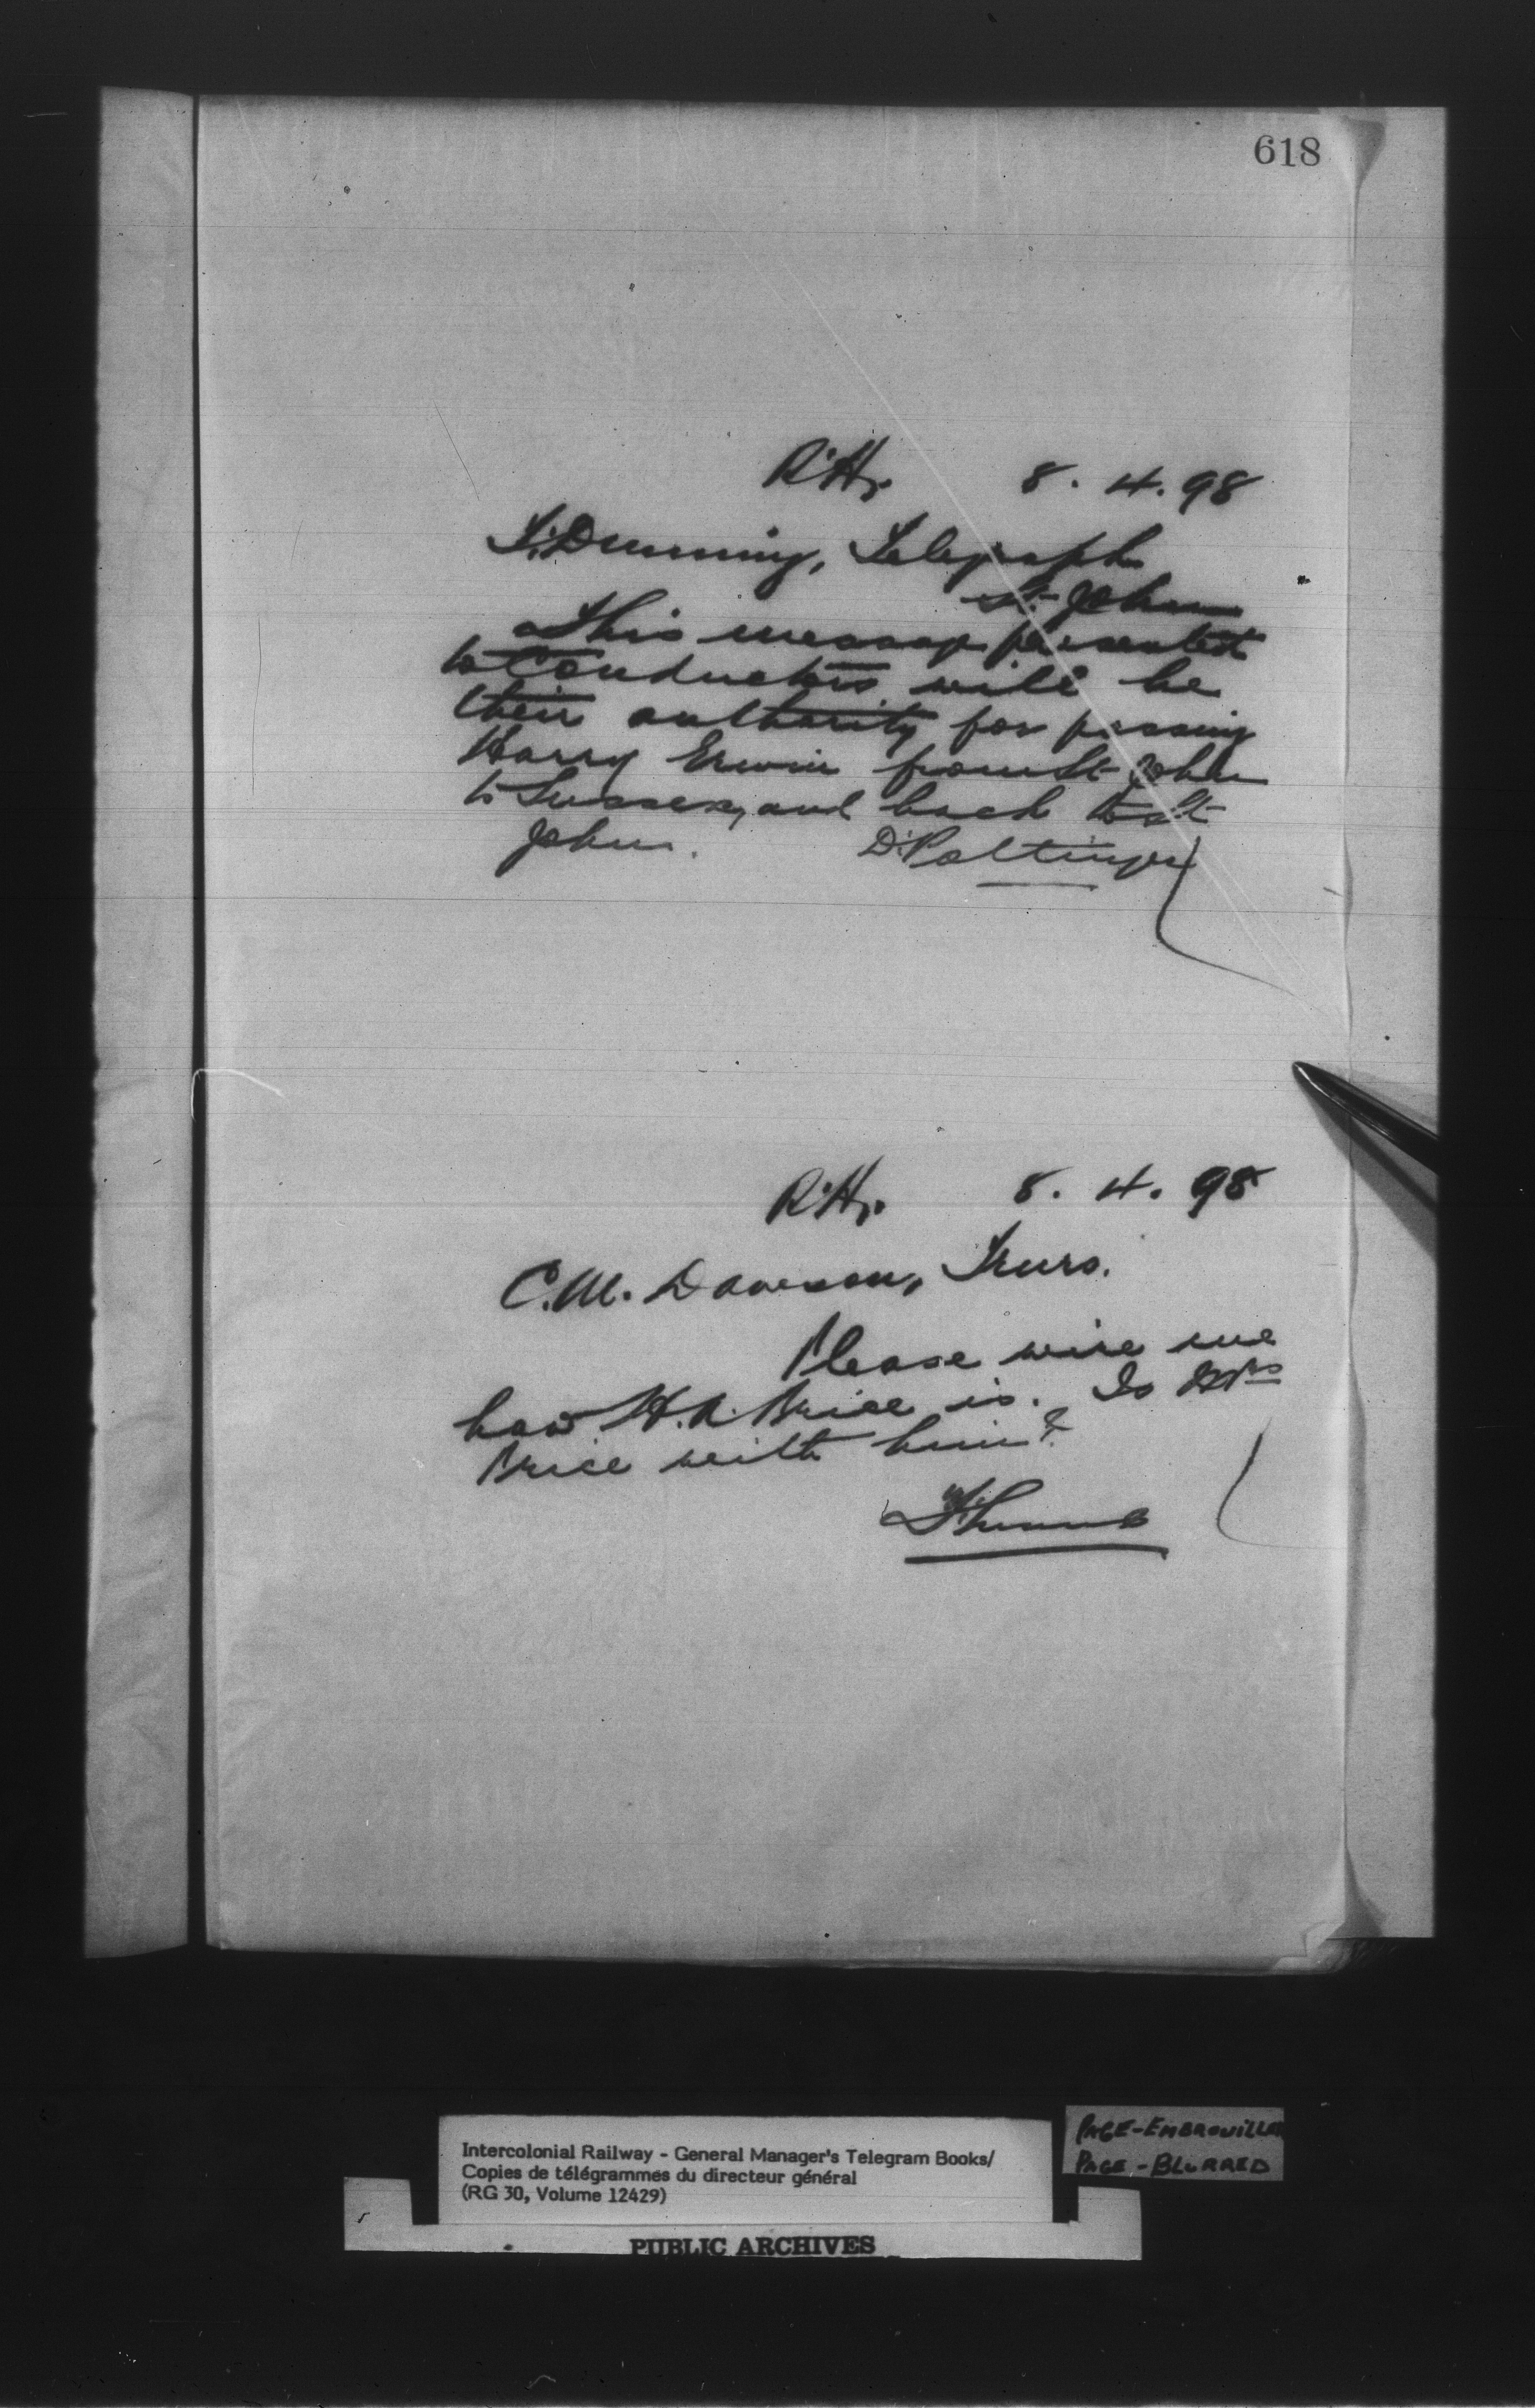 618
R'y. 8. 4. 98
T. Dunning, Telegraph
St. John
This message presented
to Conductors will be
their authority for passing
Harry Erwin from St John
to Sussex, and back to St
John. D. Pottinger
8. 4. 98
C.M. Dawson, Truro.
Please wire me
how H.A. Price is. Is Mrs
Price with him?
Intercolonial Railway - General Manager's Telegram Books/
Copies de télégrammes du directeur général
(RG 30, Volume 12429)
PUBLIC ARCHIVES
PAGE-EMBROUILLÉE
PAGE-BLURRED